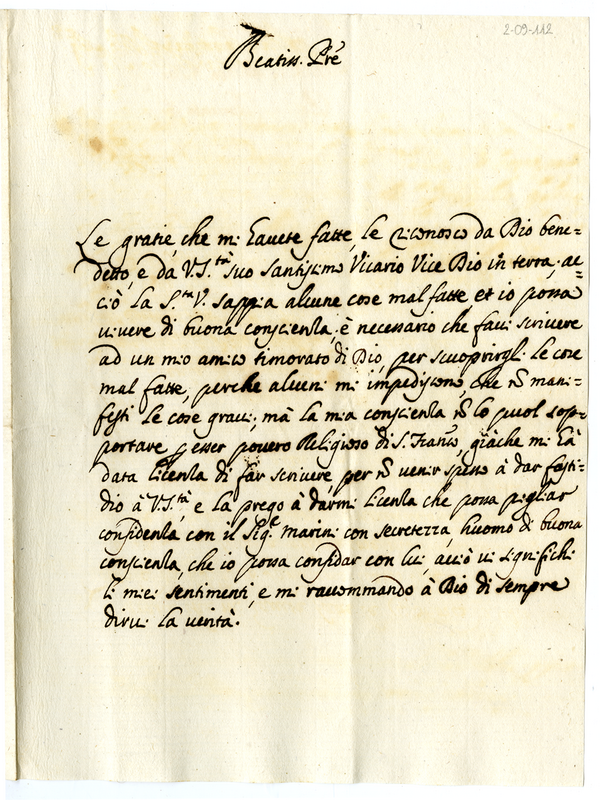 2-09-112
Beatiss. Prē
Le gratie, che mi havete fatte, le riconosco da Dio bene=
detto, e da V.S.tà suo Santissimo Vicario Vice Dio in terra, ac=
ciò la S.tà V. sappia alcune cose mal fatte et io possa
vivere di buona conscienza, è necessario che facci scrivere
ad un mio amico timorato di Dio, per scuoprirgli le cose
mal fatte, perche alcuni mi impediscono, che nō mani=
festi le cose gravi; mà la mia conscienza nō lo puol sop=
portare p esser povero Religioso di S. Franc.o, giàche mi hà
data licenza di far scrivere, per nō venir spesso à dar fasti=
dio à V.S.tà, e la prego à darmi licenza che possa pigliar
confidenza con il Sig.e Marini con secretezza, huomo di buona
conscienza, che io possa confidar con lui, acciò vi significhi
li miei sentimenti, e mi raccommando à Dio di sempre
dirvi la verità.